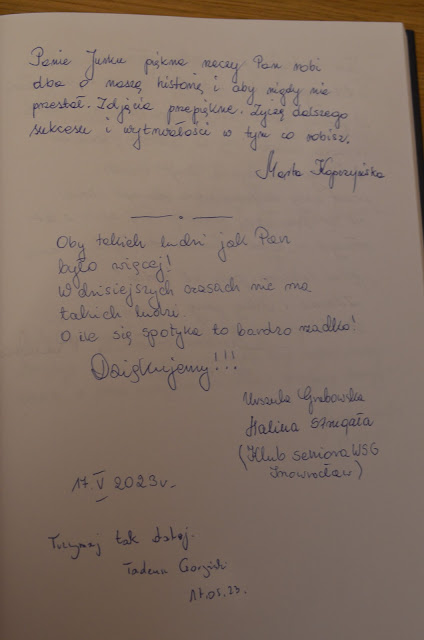 Panie Janku piękne rzeczy Pan robi
dba o naszą historię i aby nigdy nie
przestał. Zdjęcia przepiękne. Życzę dalszego
sukcesu i wytrwałości w tym co robisz.
Marta
Oby takich ludzi jak Pan
było więcej!
W dzisiejszych czasach nie ma
takich ludzi.
O ile się spotyka to bardzo rzadko!
Dziękujemy!!!
Urszula Grabowska
Halina Strugała
(Klub seniora WSG
Inowrocław)
17. V 2023r.
Trzymaj tak dalej.
Tadeusz
17.05.23.